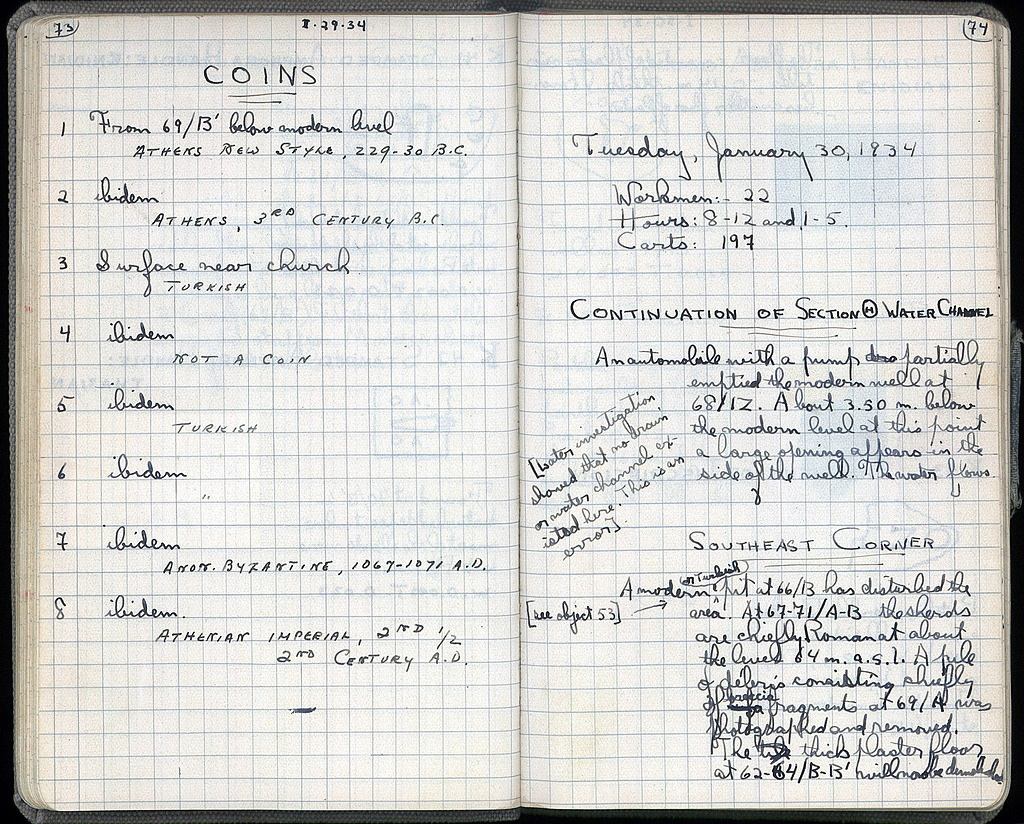 73
I·29·34
COINS
1 From 69/B' below modern level
ATHENS NEW STYLE, 229-30 B.C.
2 ibidem
ATHENS, 3RD CENTURY B.C.
3 Surface near church
TURKISH
4 ibidem
NOT A COIN
5 ibidem
TURKISH
6 ibidem
"
7 ibidem
ANON. BYZANTINE, 1067-1071 A.D.
8 ibidem.
ATHENIAN IMPERIAL, 2ND 1/2
2ND CENTURY A.D.
74
Tuesday, January 30, 1934
Workmen:- 22
Hours: 8-12 and 1-5.
Carts: 197
CONTINUATION OF SECTION Θ WATER CHANNEL
An automobile with a pump partially
emptied the modern well at
68/IZ. About 3.50 m. below
the modern level at this point
a large opening appears in the
side of the well. The water flows.
[Later investigation
showed that no drain
or water channel ex-
isted here. This is an
error].
SOUTHEAST CORNER
A modern (or Turkish) pit at 66/B has disturbed the
[see object 53] → area. At 67-71/A-B the sherds
are chiefly Roman at about
the level 64 m. a.s.l. A pile
of debris consisting chiefly
of breccia fragments at 69/A was
photographed and removed.
The thick plaster floor
at 62-64/B-B' will now be